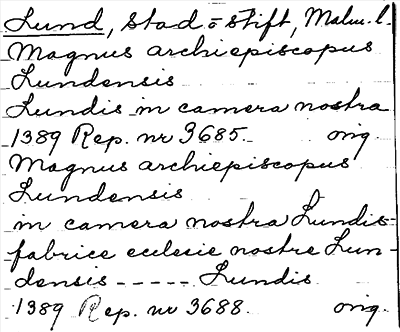 Lund, Stad o Stift, Malm. l.
Magnus archiepiscopus
Lundensis
Lundis in camera nostra
1389 Rep. nr 3685. orig.
Magnus archiepiscopus
Lundensis
in camera nostra Lundis
fabrice ecclesie nostre Lun-
densis ----- Lundis
1389 Rep. nr 3688. orig.